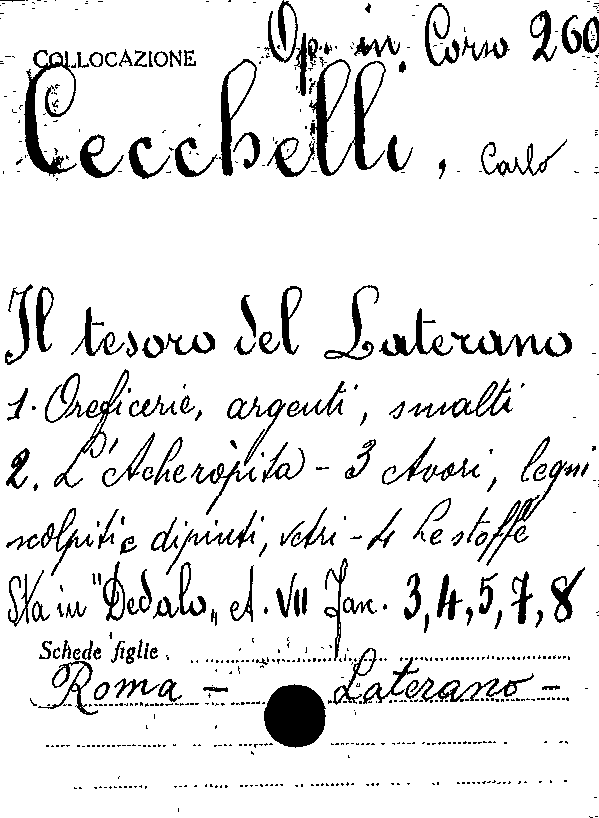 COLLOCAZIONE Op. in Corso 260
Cecchelli, Carlo
Il tesoro del Laterano
1. Oreficerie, argenti, smalti
2. L'Acheròpita - 3 Avori, legni
scolpiti e dipinti, vetri - 4 Le stoffe
Sta in "Dedalo" A. VII Fan. 3, 4, 5, 7, 8
Schede figlie
Roma - Laterano -